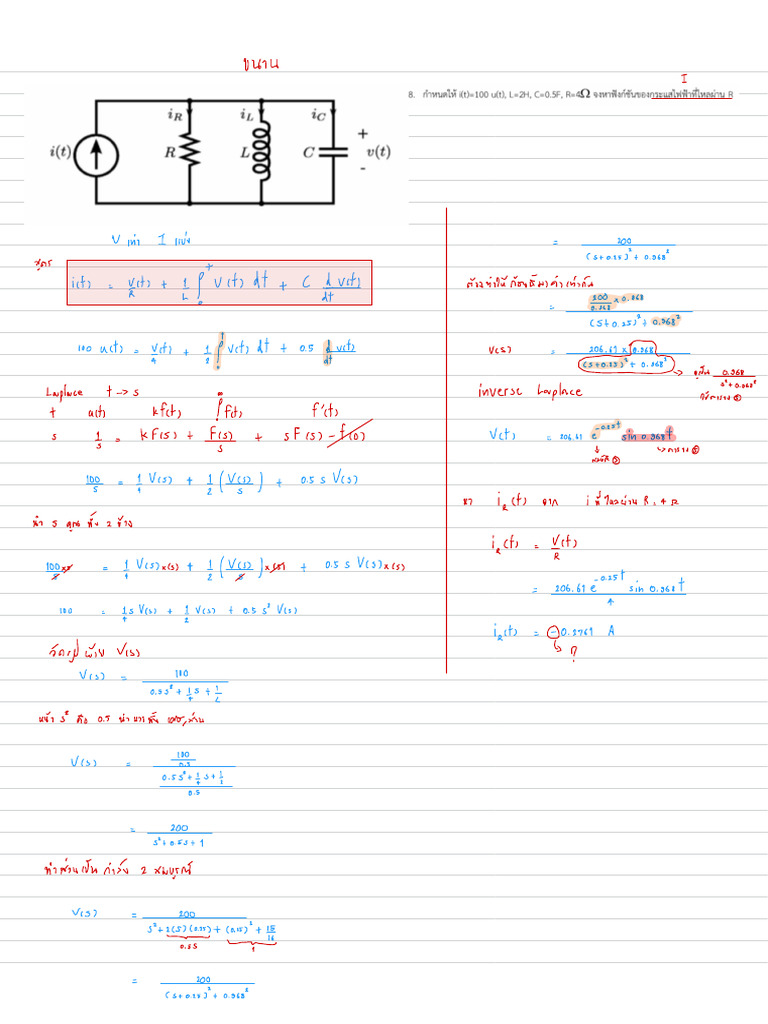 ขนาน
I
8. กำหนดให้ i(t)=100 u(t), L=2H, C=0.5F, R=4Ω จงหาฟังก์ชันของกระแสไฟฟ้าที่ไหลผ่าน R
i(t) R i_R L i_L C i_C + v(t) -
V เท่า I แบ่ง
สูตร
i(t) = V(t)/R + 1/L ∫₀ᵗ V(t) dt + C d V(t)/dt
100 u(t) = V(t)/4 + 1/2 ∫₀ᵗ V(t) dt + 0.5 d V(t)/dt
Laplace t → s
t u(t) kf(t) ∫₀^∞ f(t) f'(t)
s 1/s = kF(s) + F(s)/s + sF(s) - f(0)
100/s = 1/4 V(s) + 1/2 (V(s)/s) + 0.5 s V(s)
นำ s คูณทั้ง 2 ข้าง
100/s ×s = 1/4 V(s)×(s) + 1/2 (V(s)/s)×(s) + 0.5 s V(s)×(s)
100 = 1/4 s V(s) + 1/2 V(s) + 0.5 s² V(s)
จัดรูป V(s)
V(s) = 100 / (0.5s² + 1/4 s + 1/2)
หน้า s² คือ 0.5
V(s) = (100/0.5) / ((0.5s² + 1/4 s + 1/2)/0.5)
= 200 / (s² + 0.5s + 1)
ทำส่วนเป็นกำลัง 2 สมบูรณ์
V(s) = 200 / (s² + 2(s)(0.25) + (0.25)² + 15/16)
0.5s 1
= 200 / ((s + 0.25)² + 0.968²)
= 200 / ((s + 0.25)² + 0.968²)
= 200/0.968 × 0.968 / ((s + 0.25)² + 0.968²)
V(s) = 206.61 × 0.968 / ((s + 0.25)² + 0.968²)
0.968 / (s² + 0.968²)
inverse Laplace
V(t) = 206.61 e^(-0.25t) sin 0.968t
หา i_R(t) จาก i ที่ไหลผ่าน R = 4 Ω
i_R(t) = V(t)/R
= 206.61 e^(-0.25t) sin 0.968t / 4
i_R(t) = -0.2761 A
?